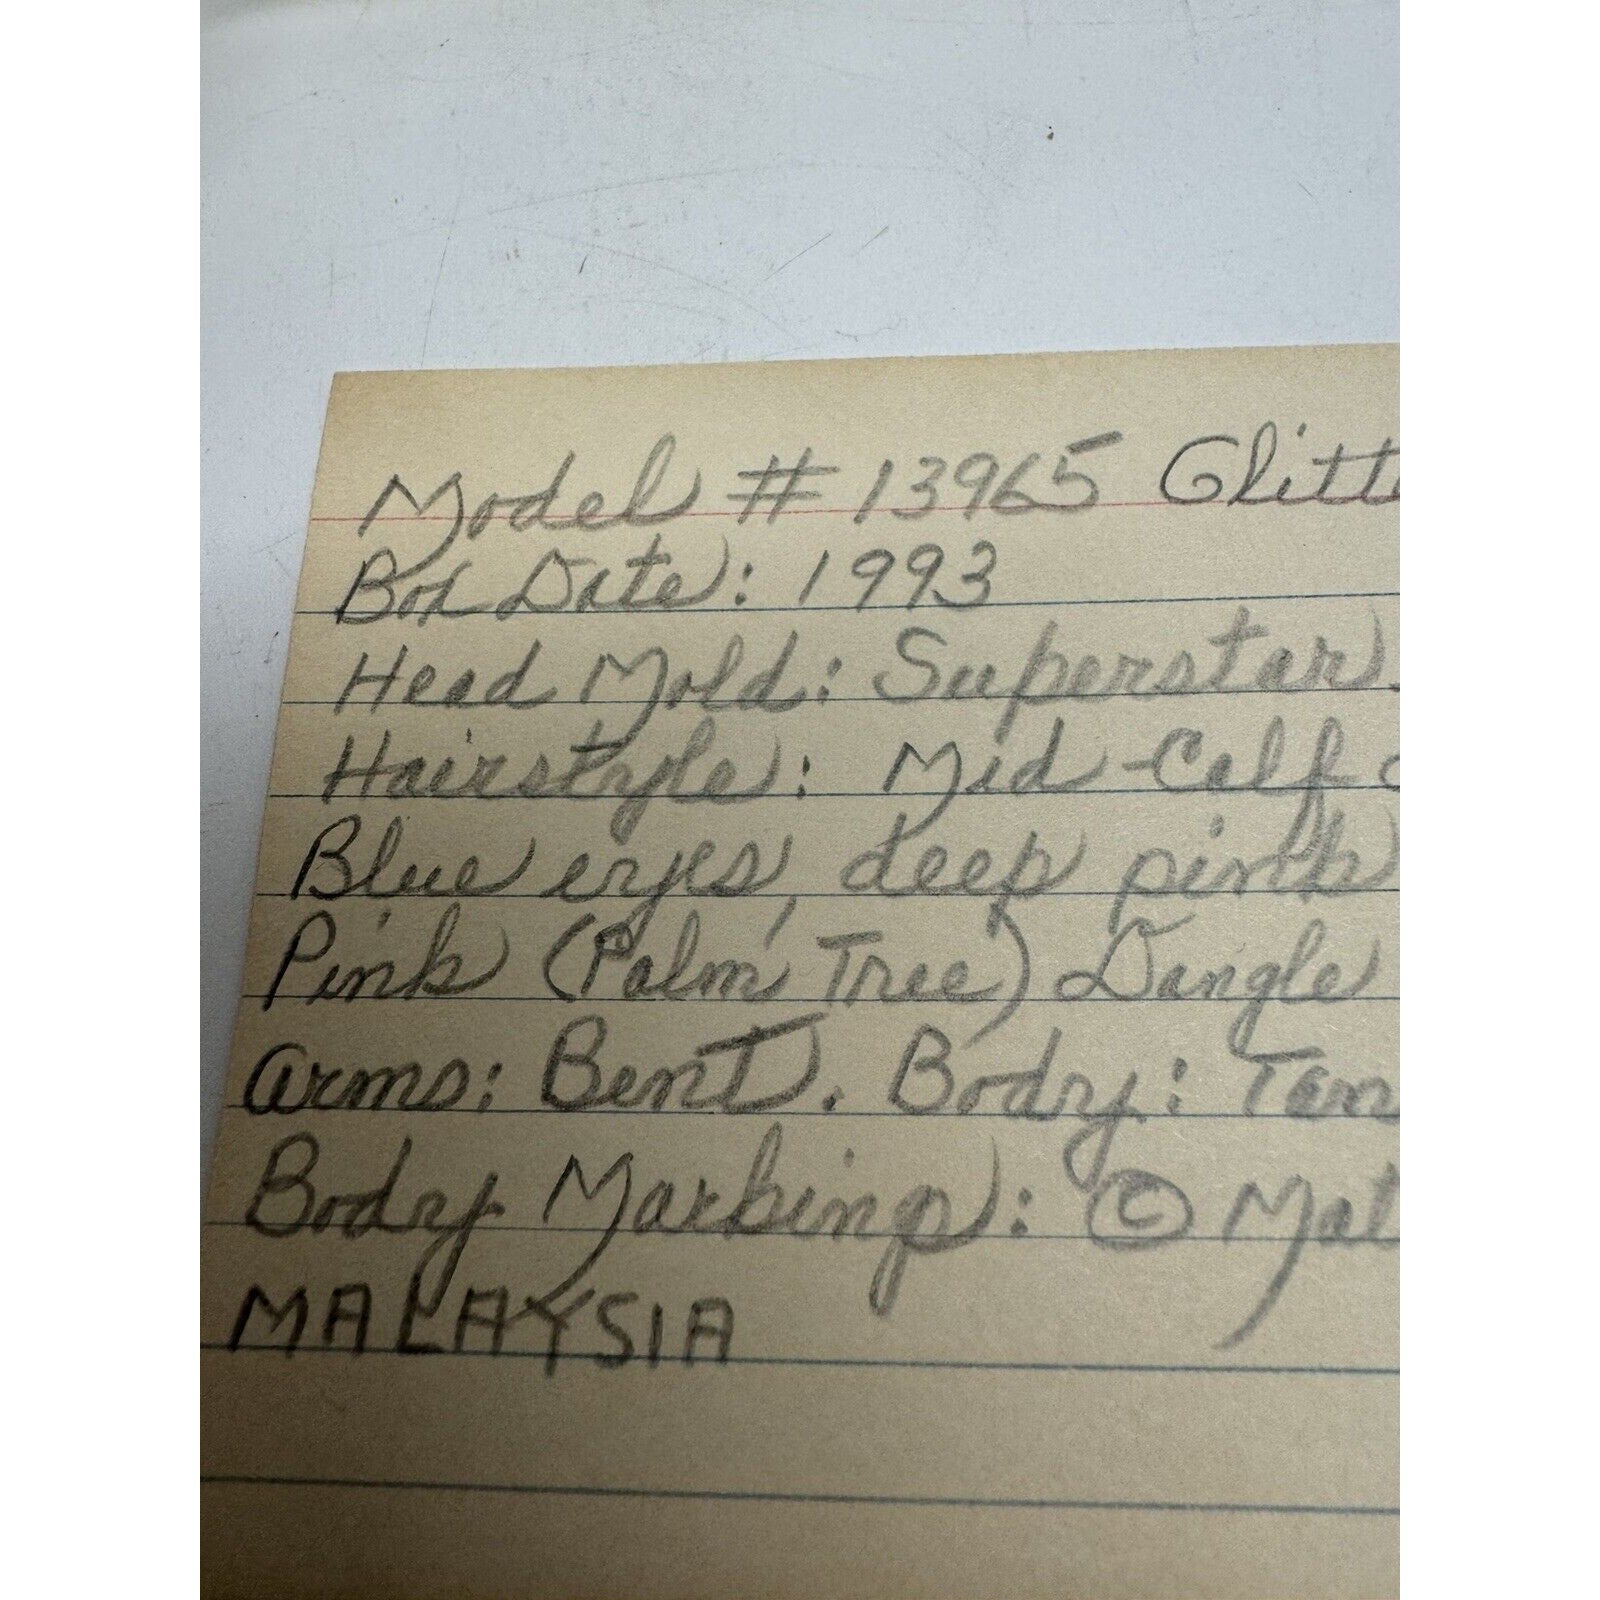 Model # 13965 Glitt
Box Date: 1993
Head Mold: Superstar.
Hairstyle: Mid-Calf
Blue eyes, deep pink
Pink (Palm Tree) Dangle
Arms: Bent. Body: Tan
Body Marking: © Mat
MALAYSIA